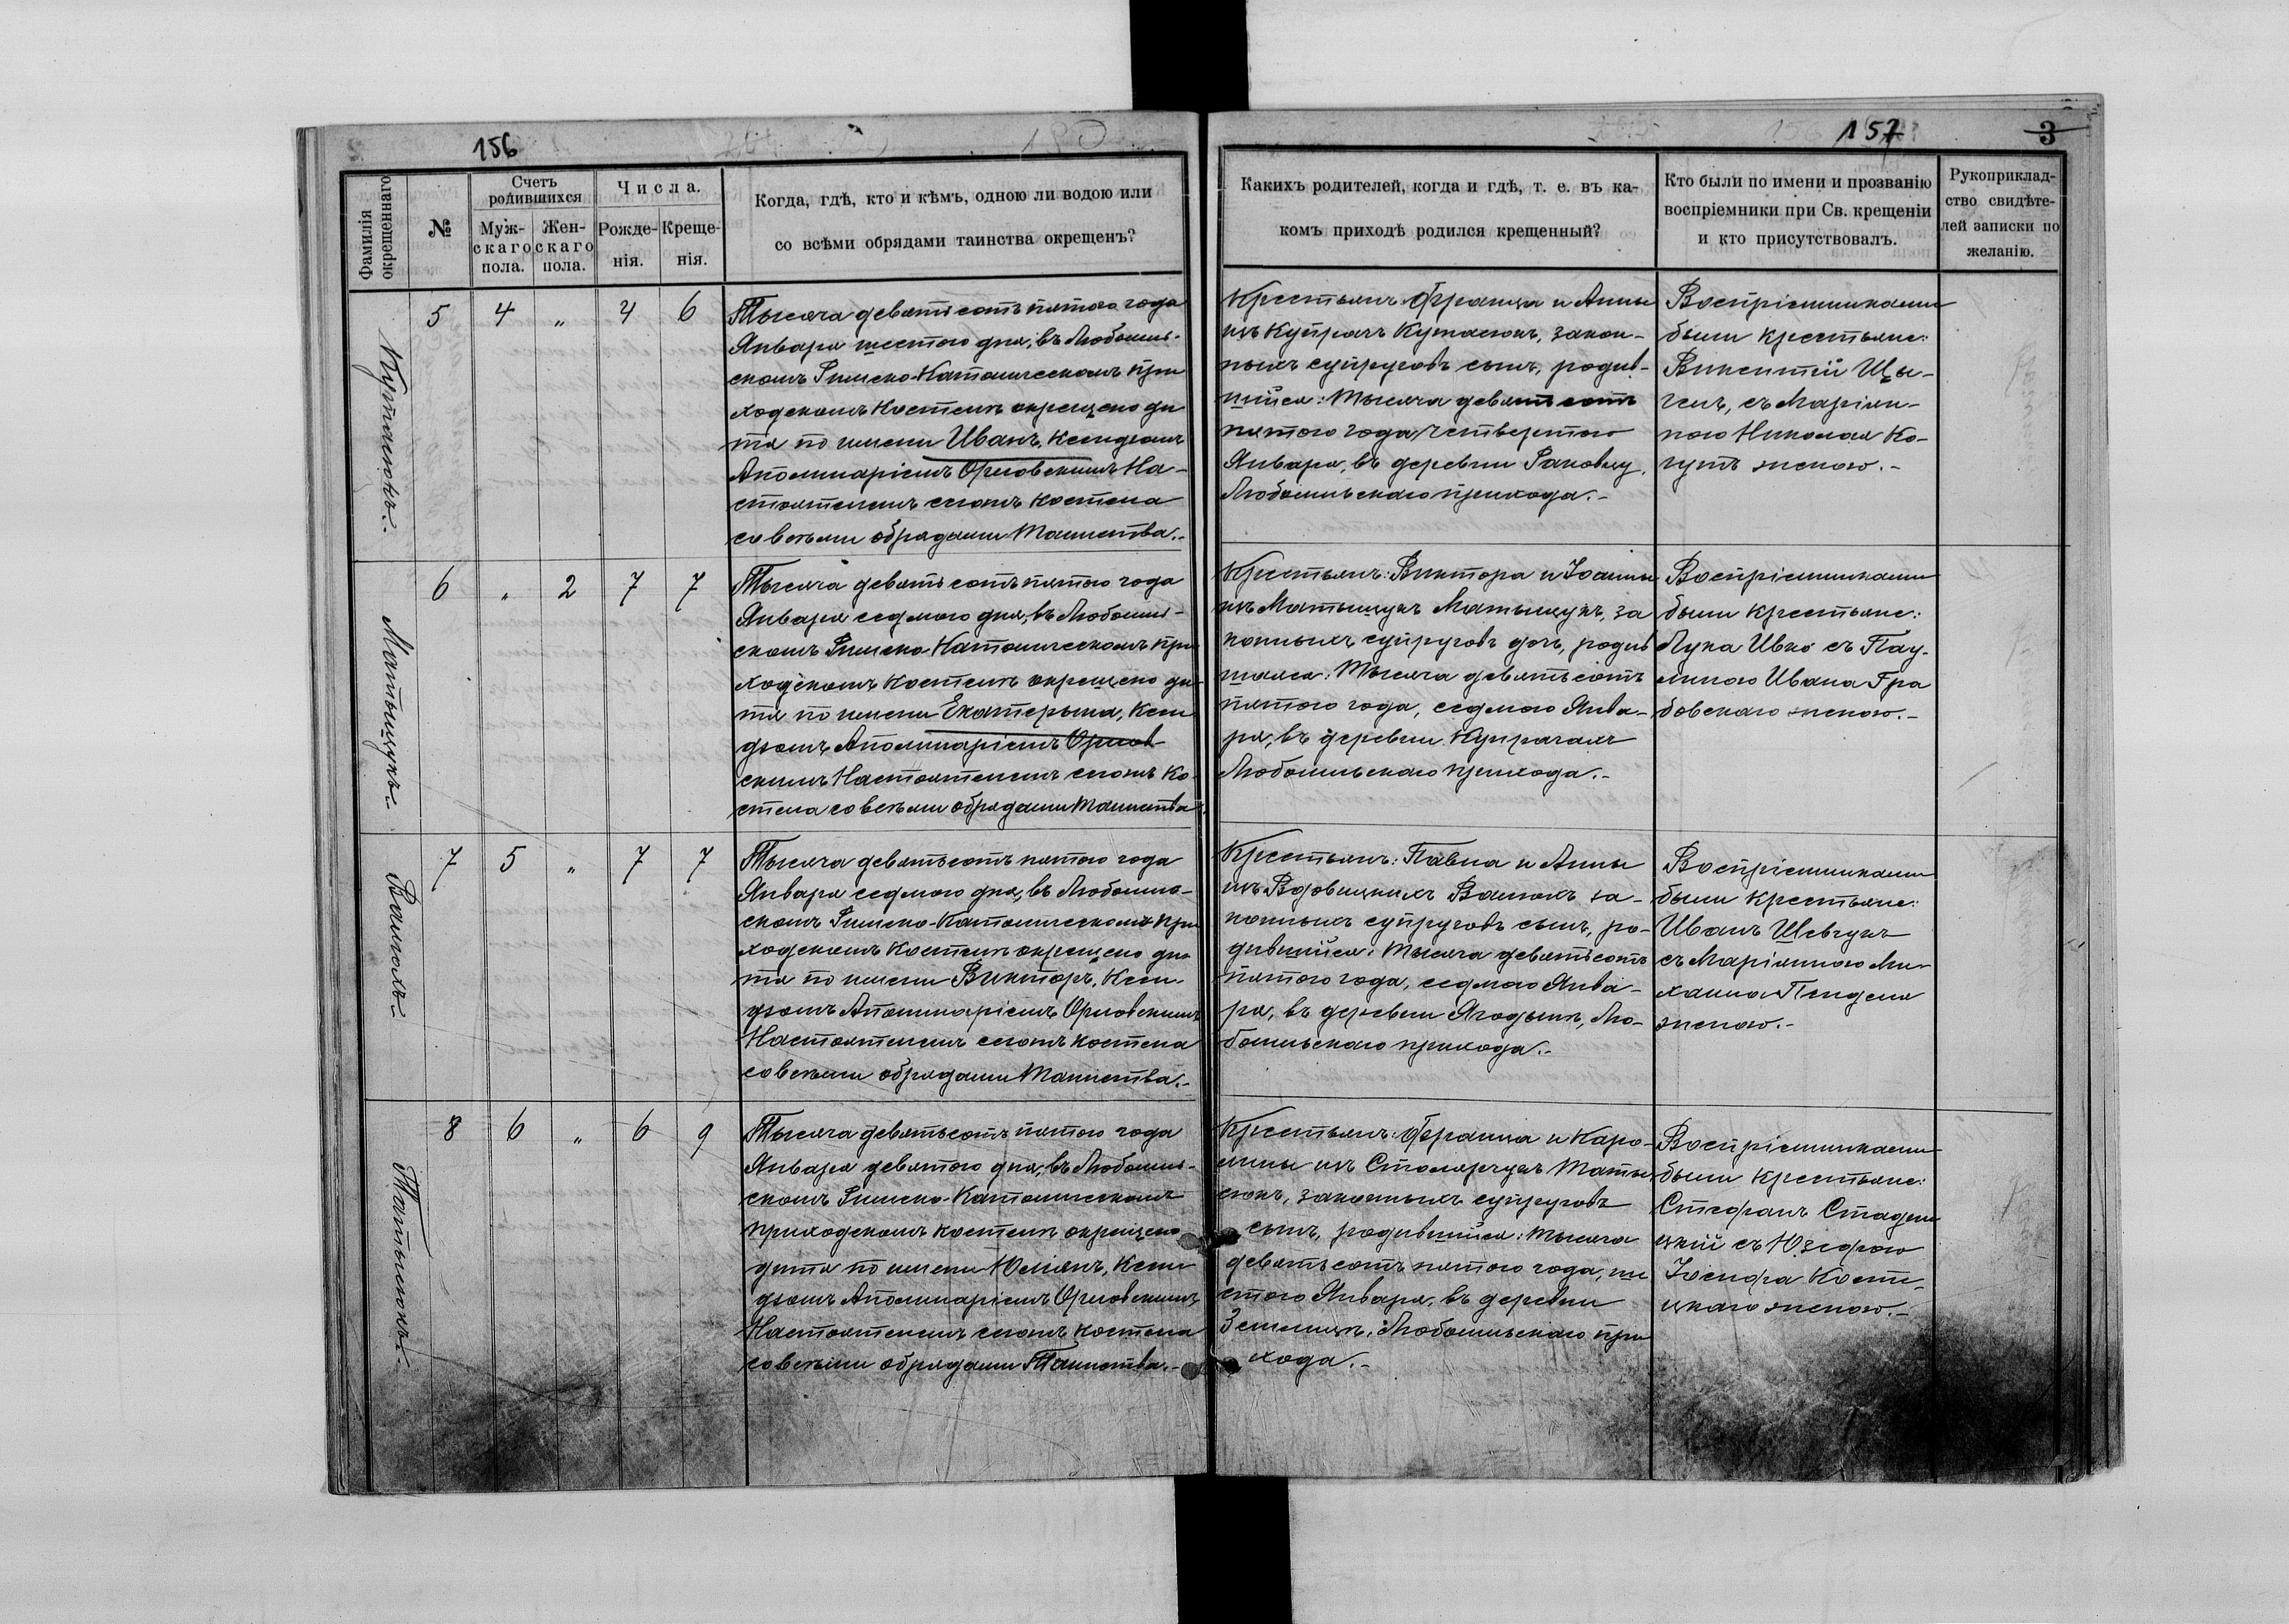 156
157
3
Фамилія окрещеннаго
№
Счетъ родившихся
Муж-скаго пола.
Жен-скаго пола.
Числа.
Рожде-нія.
Креще-нія.
Когда, гдѣ, кто и кѣмъ, одною ли водою или
со всѣми обрядами таинства окрещенъ?
Какихъ родителей, когда и гдѣ, т. е. въ ка-
комъ приходѣ родился крещенный?
Кто были по имени и прозванію
воспріемники при Св. крещеніи
и кто присутствовалъ.
Рукоприклад-
ство свидѣте-
лей записки по
желанію.
5 4 „ 4 6
Тысяча девятьсотъ пятого года
Января шестого дня, въ Любомль-
скомъ Римско-Католическомъ при
ходскомъ костелѣ окрещено ди
тя по имени Иванъ, Ксендзомъ
Аполинаріемъ Орловскимъ На-
стоятелемъ сего костела
со всѣми обрядами Таинства.-
Крестьянъ: Франца и Анны
изъ Купрачъ закон-
ныхъ супруговъ сынъ, родив-
шійся: Тысяча девятьсотъ
пятого года четвертого
Января, въ деревни
Любомльскаго прихода.-
Воспріемниками
были крестьяне:
Викентій Щы-
съ Маріян-
ною Николая Ко-
гутъ женою.-
Матыщукъ.
6 „ 2 7 7
Тысяча девятьсотъ пятого года
Января седмого дня, въ Любомль-
скомъ Римско-Католическомъ при
ходскомъ костелѣ окрещено ди-
тя по имени Екатерына, Ксен
дзомъ Аполинаріемъ Орлов-
скимъ Настоятелемъ сего Ко-
стела со всѣми обрядами таинства
Крестьянъ: Виктора и Іоанны
изъ Матыщукъ Матыщукъ, за
конныхъ супруговъ дочь, родив
шаяся: Тысяча девятьсотъ
пятого года, седмого Янва-
ря, въ деревни Купрачахъ
Любомльскаго прихода.-
Воспріемниками
были крестьяне:
Лука Ивко съ Пау-
линою Ивана Гра
бовскаго женою.-
7 5 „ 7 7
Тысяча девятьсотъ пятого года
Января седмого дня, въ Любомль-
скомъ Римско-Католическомъ при
ходскомъ костелѣ окрещено ди
тя по имени Викторъ, Ксен-
дзомъ Аполинаріемъ Орловскимъ
Настоятелемъ сего костела
со всѣми обрядами Таинства.-
Крестьянъ: Павла и Анны
изъ Вдовицкихъ за-
конныхъ супруговъ сынъ, ро-
дившійся: Тысяча девятьсотъ
пятого года, седмого Янва-
ря, въ деревни Ягодынѣ, Лю-
бомльскаго прихода.-
Воспріемниками
были крестьяне:
Иванъ Шевчукъ
съ Маріянною Ми-
хаила
женою.-
8 6 „ 6 9
Тысяча девятьсотъ пятого года
Января девятого дня, въ Любомль-
скомъ Римско-Католическомъ
приходскомъ костелѣ окрещено
дитя по имени Юліянъ, Ксен
дзомъ Аполинаріемъ Орловскимъ
Настоятелемъ сего костела
со всѣми обрядами Таинства.-
Крестьянъ: Франца и Каро-
лины изъ Столярчукъ
законныхъ супруговъ
сынъ, родившійся: тысяча
девятьсотъ пятого года, ше
стого Января, въ деревни
Земицѣ, Любомльскаго при
хода.-
Воспріемниками
были крестьяне:
Стефанъ
цкій съ Юзефою
Іосифа
цкаго женою.-